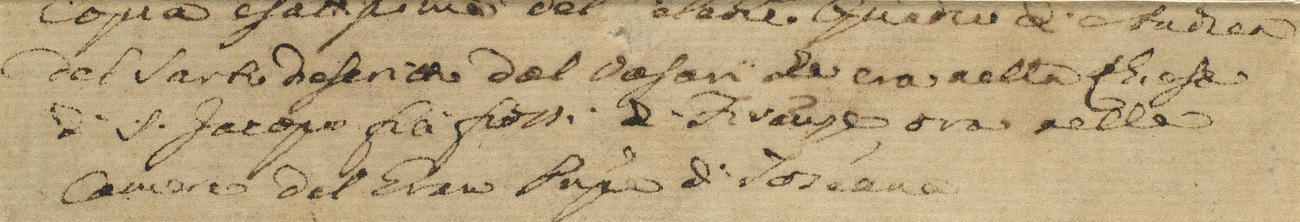 Copia esattissima del celebre Quadro di Andrea
del Sarto descritto dal Vasari che era nella Chiesa
di S. Jacopo fra fossi di Firenze ora nelle
Camere del Gran Pnpe di Toscana